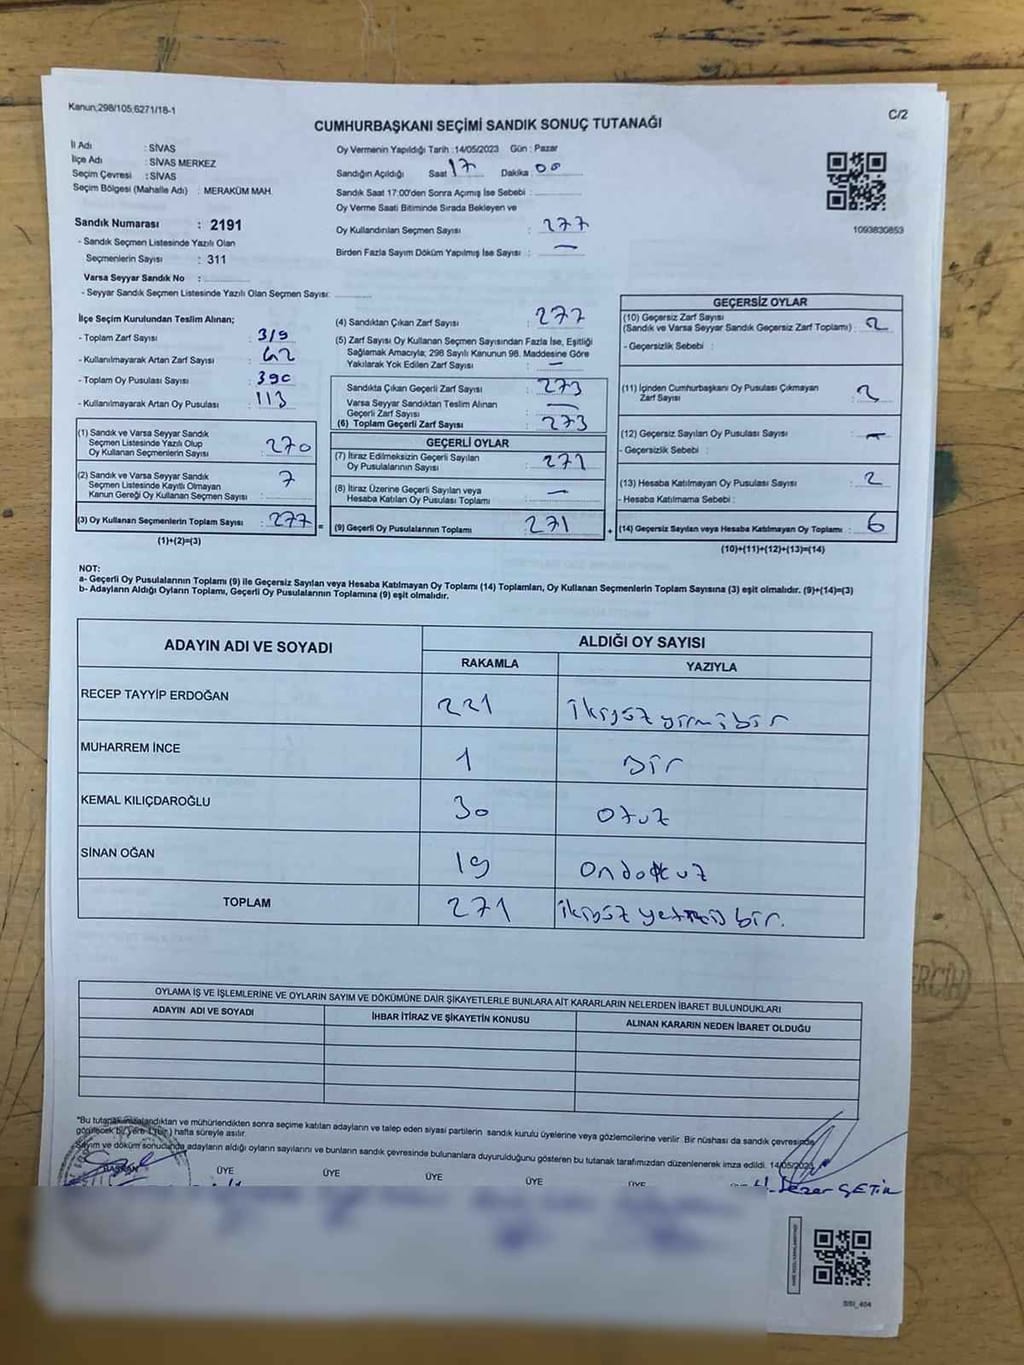 Kanun;298/105;6271/18-1
C/2
CUMHURBAŞKANI SEÇİMİ SANDIK SONUÇ TUTANAĞI
İl Adı : SİVAS
İlçe Adı : SİVAS MERKEZ
Seçim Çevresi : SİVAS
Seçim Bölgesi (Mahalle Adı) : MERAKÜM MAH.
Sandık Numarası : 2191
- Sandık Seçmen Listesinde Yazılı Olan
Seçmenlerin Sayısı : 311
Varsa Seyyar Sandık No :
- Seyyar Sandık Seçmen Listesinde Yazılı Olan Seçmen Sayısı:
Oy Vermenin Yapıldığı Tarih :14/05/2023 Gün : Pazar
Sandığın Açıldığı Saat 17 Dakika 00
Sandık Saat 17:00'den Sonra Açımış İse Sebebi :
Oy Verme Saati Bitiminde Sırada Bekleyen ve
Oy Kullandırılan Seçmen Sayısı : 277
Birden Fazla Sayım Döküm Yapılmış İse Sayısı : —
1093830853
İlçe Seçim Kurulundan Teslim Alınan;
- Toplam Zarf Sayısı : 319
- Kullanılmayarak Artan Zarf Sayısı : 42
- Toplam Oy Pusulası Sayısı : 390
- Kullanılmayarak Artan Oy Pusulası : 113
(1) Sandık ve Varsa Seyyar Sandık
Seçmen Listesinde Yazılı Olup
Oy Kullanan Seçmenlerin Sayısı : 270
(2) Sandık ve Varsa Seyyar Sandık
Seçmen Listesinde Kayıtlı Olmayan
Kanun Gereği Oy Kullanan Seçmen Sayısı : 7
(3) Oy Kullanan Seçmenlerin Toplam Sayısı : 277
(1)+(2)=(3)
(4) Sandıktan Çıkan Zarf Sayısı : 277
(5) Zarf Sayısı Oy Kullanan Seçmen Sayısından Fazla İse, Eşitliği
Sağlamak Amacıyla, 298 Sayılı Kanunun 98. Maddesine Göre
Yakılarak Yok Edilen Zarf Sayısı : —
Sandıkta Çıkan Geçerli Zarf Sayısı : 273
Varsa Seyyar Sandıktan Teslim Alınan
Geçerli Zarf Sayısı : —
(6) Toplam Geçerli Zarf Sayısı : 273
GEÇERLİ OYLAR
(7) İtiraz Edilmeksizin Geçerli Sayılan
Oy Pusulalarının Sayısı : 271
(8) İtiraz Üzerine Geçerli Sayılan veya
Hesaba Katılan Oy Pusulası Toplamı : —
= (9) Geçerli Oy Pusulalarının Toplamı : 271 +
GEÇERSİZ OYLAR
(10) Geçersiz Zarf Sayısı
(Sandık ve Varsa Seyyar Sandık Geçersiz Zarf Toplamı) : 2
- Geçersizlik Sebebi :
(11) İçinden Cumhurbaşkanı Oy Pusulası Çıkmayan
Zarf Sayısı : 2
(12) Geçersiz Sayılan Oy Pusulası Sayısı : —
- Geçersizlik Sebebi :
(13) Hesaba Katılmayan Oy Pusulası Sayısı : 2
- Hesaba Katılmama Sebebi :
(14) Geçersiz Sayılan veya Hesaba Katılmayan Oy Toplamı : 6
(10)+(11)+(12)+(13)=(14)
NOT:
a- Geçerli Oy Pusulalarının Toplamı (9) ile Geçersiz Sayılan veya Hesaba Katılmayan Oy Toplamı (14) Toplamları, Oy Kullanan Seçmenlerin Toplam Sayısına (3) eşit olmalıdır. (9)+(14)=(3)
b- Adayların Aldığı Oyların Toplamı, Geçerli Oy Pusulalarının Toplamına (9) eşit olmalıdır.
ADAYIN ADI VE SOYADI
ALDIĞI OY SAYISI
RAKAMLA YAZIYLA
RECEP TAYYİP ERDOĞAN 221 ikiyüz yirmi bir
MUHARREM İNCE 1 Bir
KEMAL KILIÇDAROĞLU 30 Otuz
SİNAN OĞAN 19 Ondokuz
TOPLAM 271 ikiyüz yetmiş bir.
OYLAMA İŞ VE İŞLEMLERİNE VE OYLARIN SAYIM VE DÖKÜMÜNE DAİR ŞİKAYETLERLE BUNLARA AİT KARARLARIN NELERDEN İBARET BULUNDUKLARI
ADAYIN ADI VE SOYADI İHBAR İTİRAZ VE ŞİKAYETİN KONUSU ALINAN KARARIN NEDEN İBARET OLDUĞU
*Bu tutanak imzalandıktan ve mühürlendikten sonra seçime katılan adayların ve talep eden siyasi partilerin sandık kurulu üyelerine veya gözlemcilerine verilir. Bir nüshası da sandık çevresinde
görülecek bir yere 1 (bir) hafta süreyle asılır.
Sayım ve döküm sonucunda adayların aldığı oyların sayılarını ve bunların sandık çevresinde bulunanlara duyurulduğunu gösteren bu tutanak tarafımızdan düzenlenerek imza edildi. 14/05/2023
BAŞKAN ÜYE ÜYE ÜYE ÜYE ÜYE
Sezer ÇETİN
SSI_404